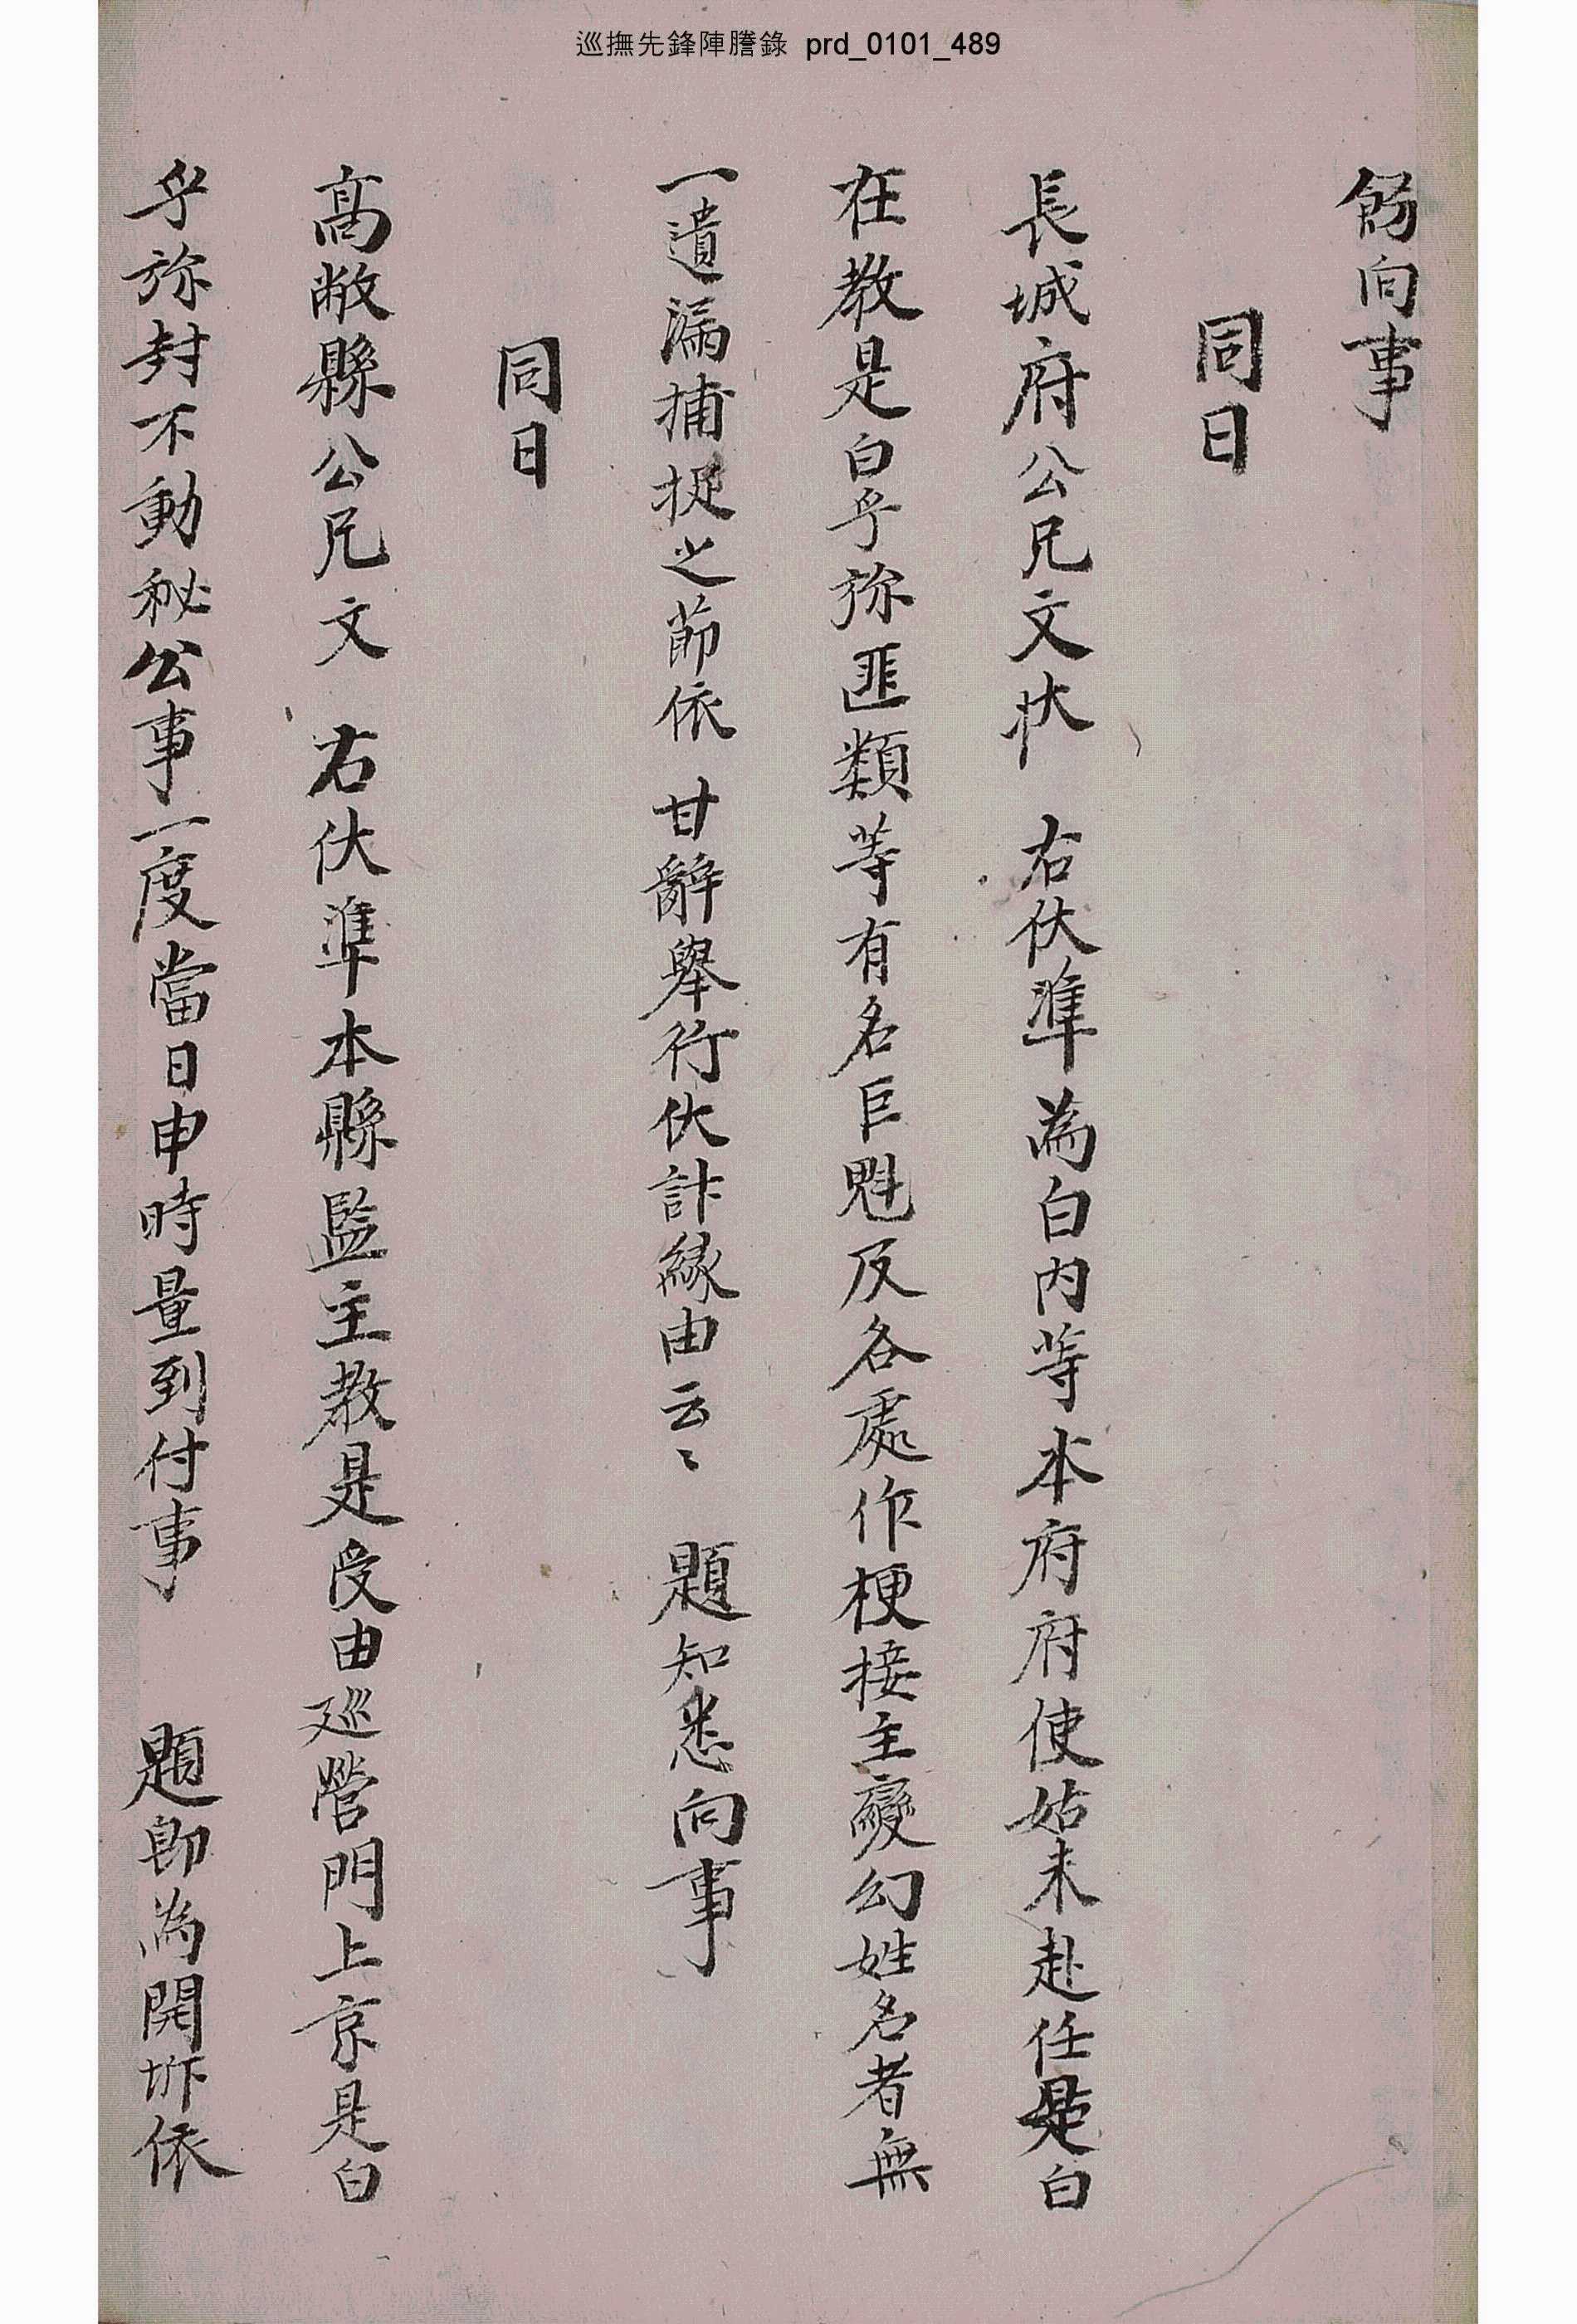 巡撫先鋒陣謄錄 prd_0101_489
飭向事
同日
長城府公兄文狀 右伏準爲白內等本府府使姑未赴任是白
在敎是白乎旀匪類等有名巨魁及各處作梗接主變幻姓名者無
一遺漏捕捉之節依 甘辭擧行伏計緣由云〻 題知悉向事
同日
高敞縣公兄文 右伏準本縣監主敎是受由巡營門上京是白
乎旀封不動秘公事一度當日申時量到付事 題卽爲開坼依